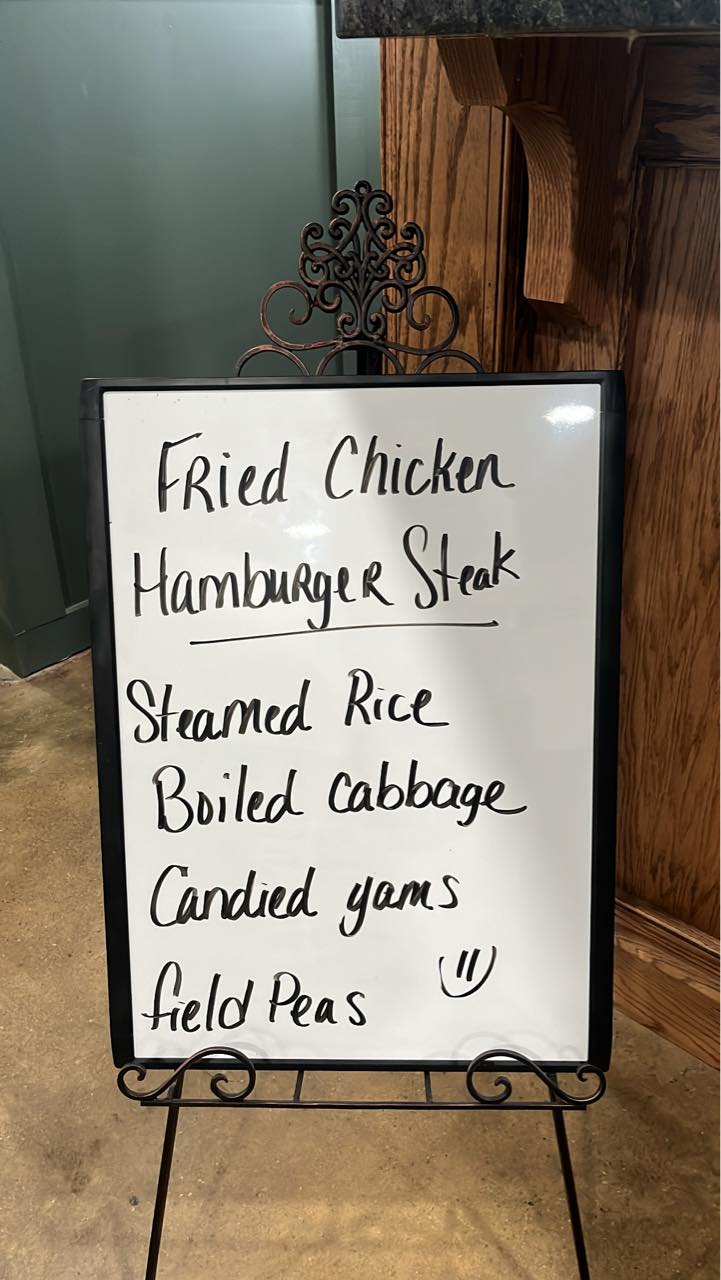 Fried Chicken
Hamburger Steak
Steamed Rice
Boiled cabbage
Candied yams
field Peas